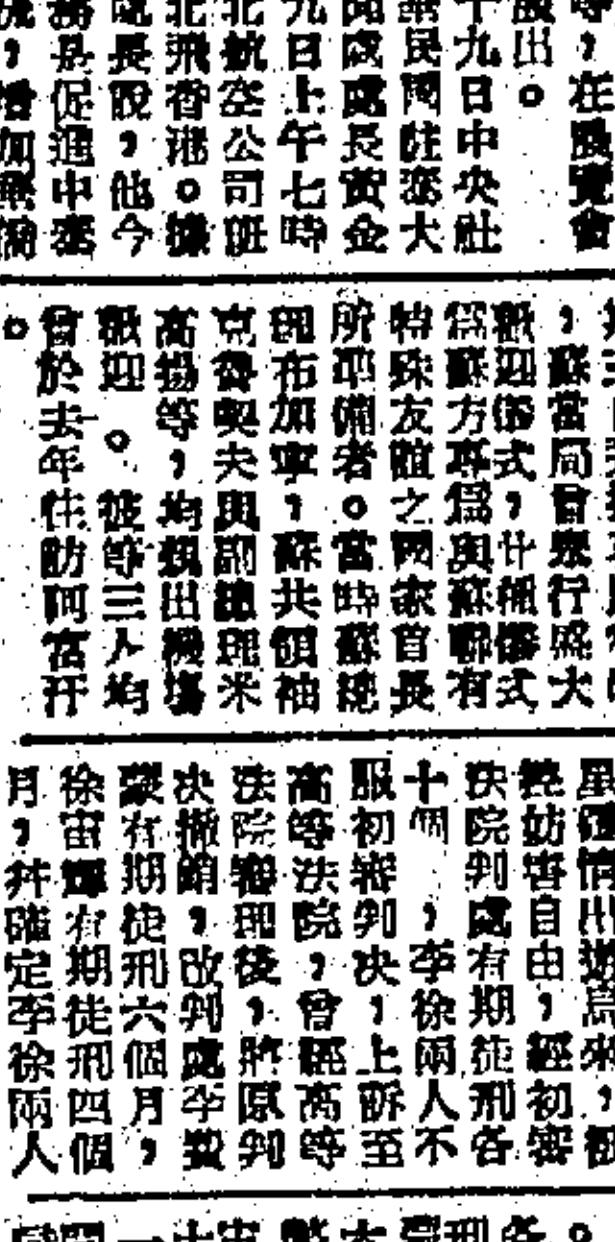 等，在展覽會
展出。
十九日中央社
華民國駐寮大
處處長黃金
九日上午七時
北航空公司班
北飛香港。據
處長說，他今
務是促進中寮
，增加
，蘇當局曾舉行盛大
歡迎儀式，此種儀式
為蘇方專為與蘇聯有
特殊友誼之國家首長
所準備者。當時蘇總
理布加寧，蘇共領袖
克魯契夫與副總理米
高揚等，均親出機場
歡迎。彼等三人均
曾於去年往訪阿富汗
。
星礎情出遊烏來，被
控妨害自由，經初審
法院判處有期徒刑各
十個　，李徐兩人不
服初審判決，上訴至
高等法院，曾經高等
法院審理後，將原判
決撤銷，改判處李
有期徒刑六個月，
徐宙輝有期徒刑四個
月，并確定李徐兩人